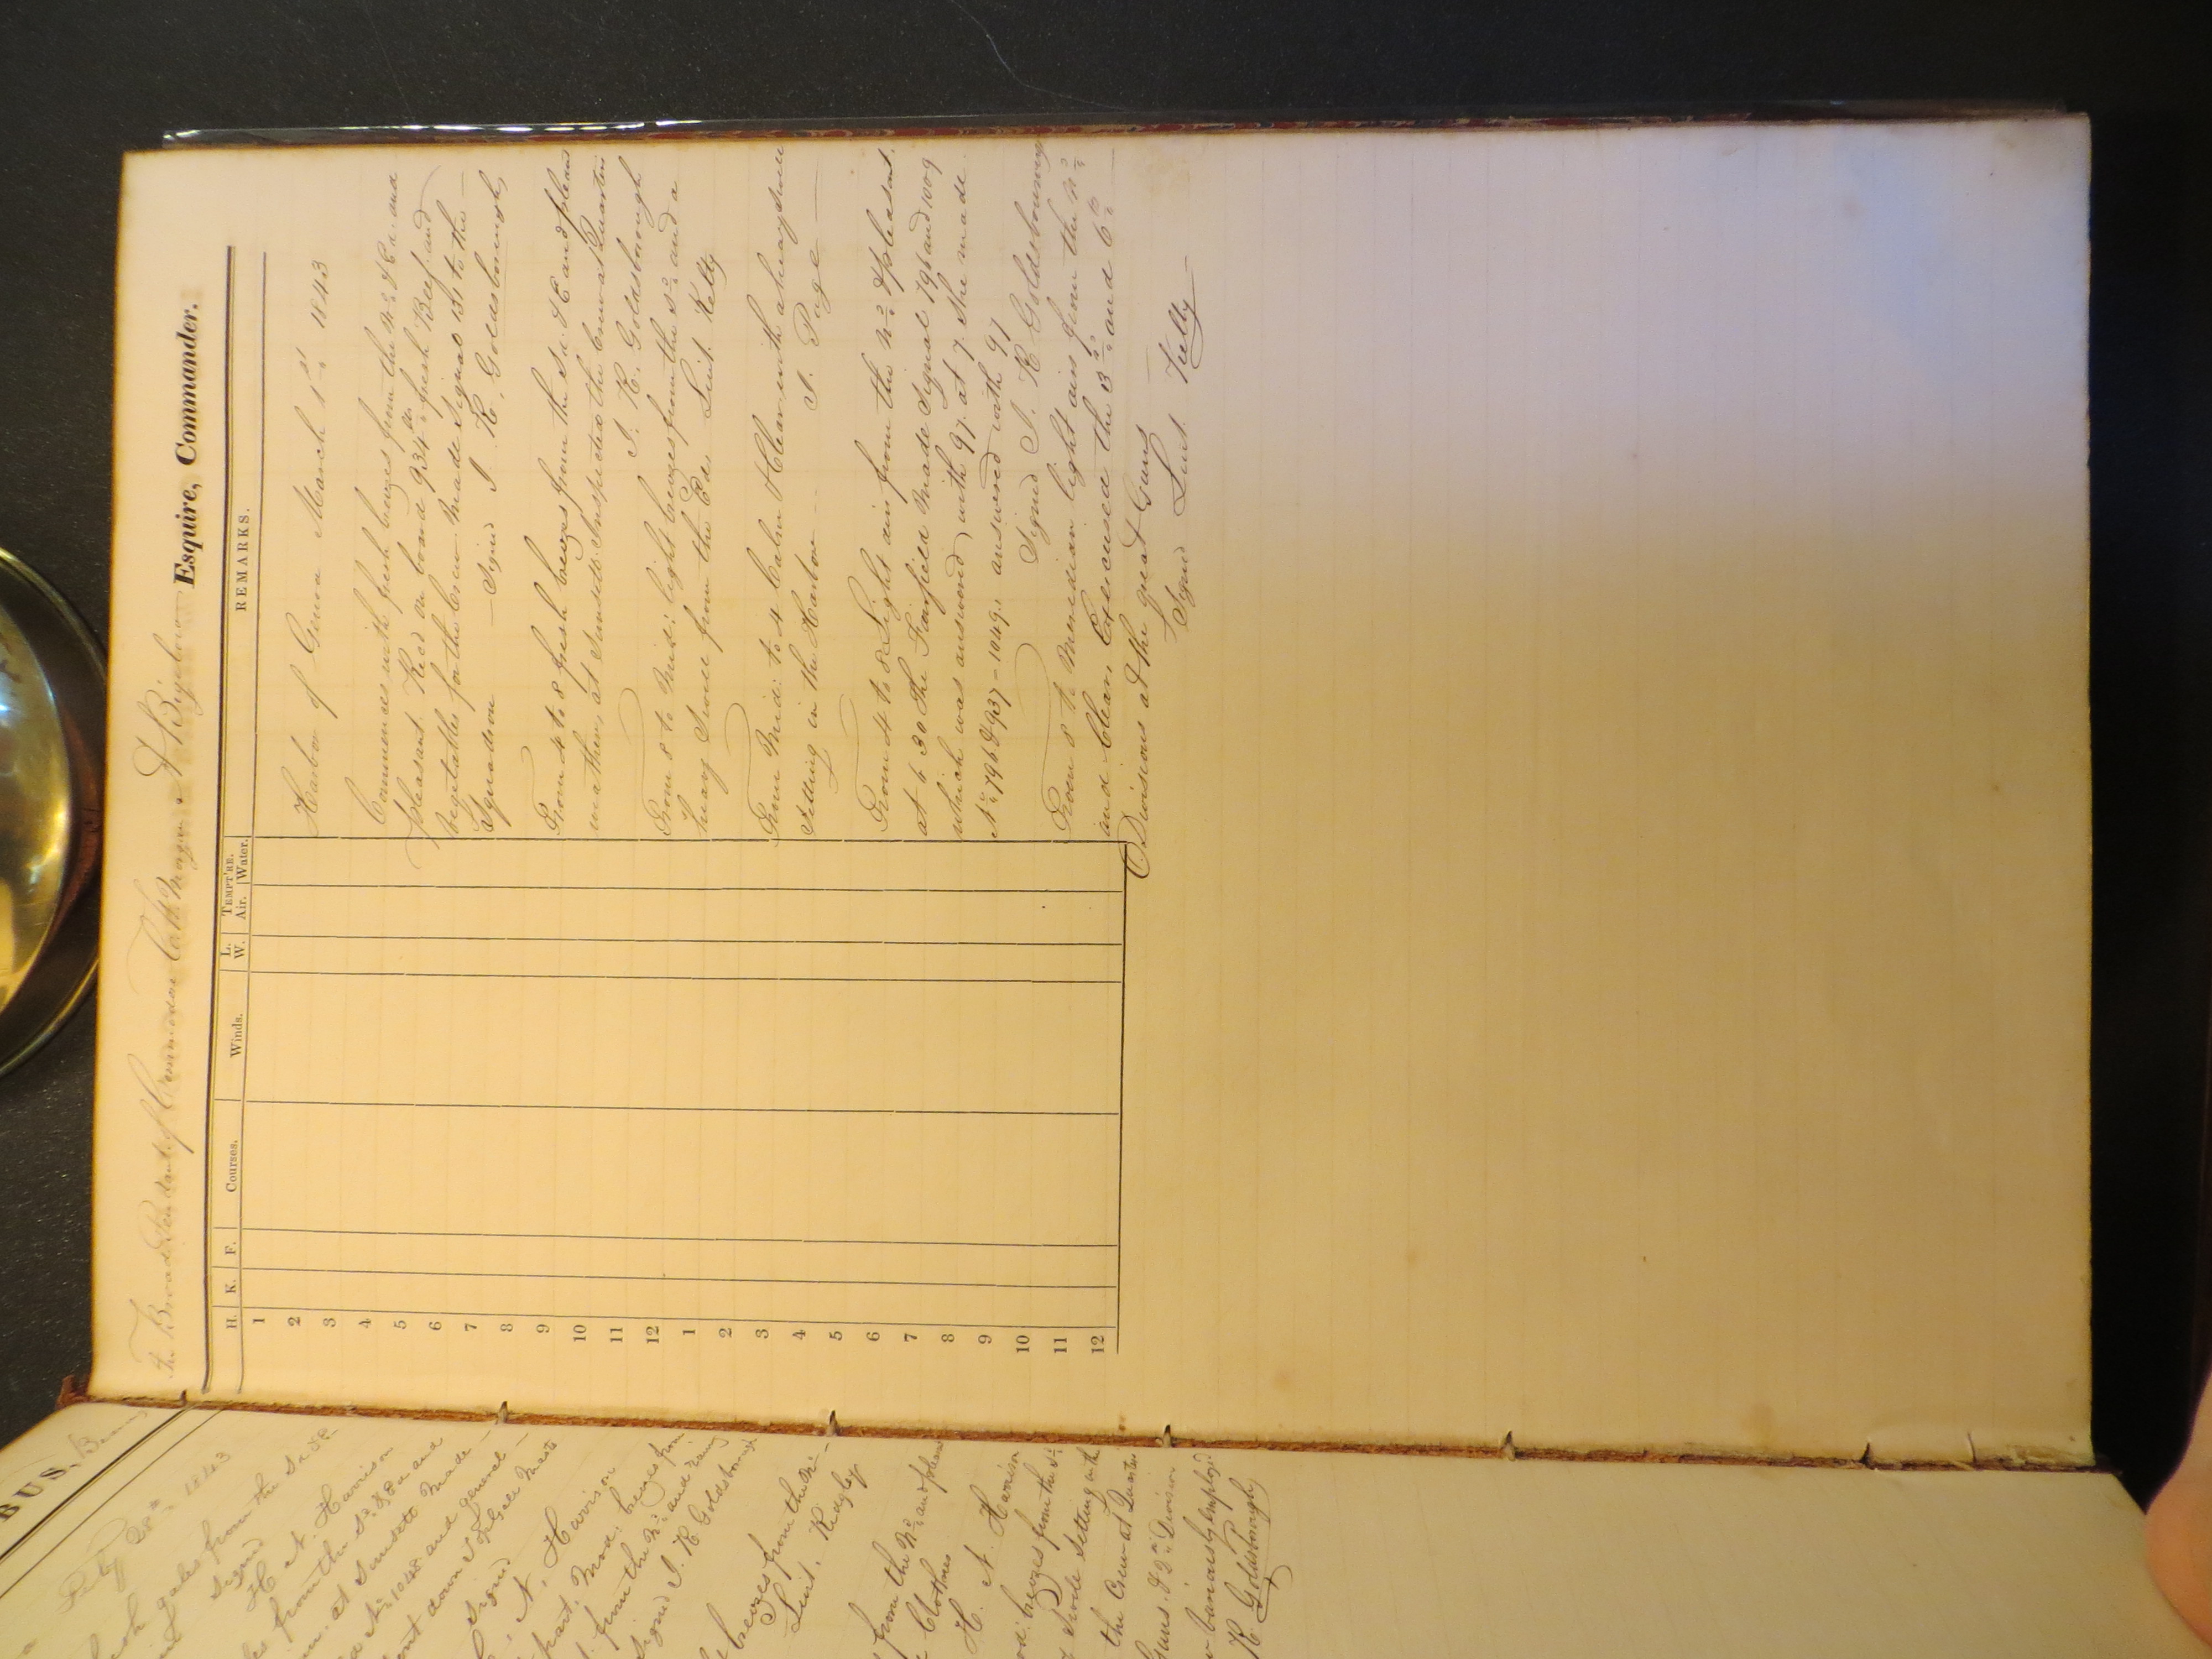 BUS, Bearing
Feby 28th 1843
gales from the Sd &
Signed
H. N. Harrison
from the Sd & Ed and
at Sunsett Made
No 1048 and general
down
Signed
N. Harrison
Mod: breezes from
from the Nd and
Signed I. R. Goldsborough
breezes from the Nd
Lieut. Ridgley
from the Nd and pleasant
Clothes
H. N. Harrison
breezes from the Sd
Swell Setting into
the Crew at Quarters
Guns. & 2nd Division
variously employed
R. Goldsborough
the Broad Pendant of Commodore C. W. Morgan, A Bigelow Esquire, Commander.
H. K. F. Courses. Winds. L. W. TEMPT'RE. Air. Water. REMARKS.
1
2
3
4
5
6
7
8
9
10
11
12
1
2
3
4
5
6
7
8
9
10
11
12
Harbor of Genoa March 1st 1843
Commences with fresh breezes from the Nd & Ed. and
pleasant. Recd on board 934 lbs fresh Beef and
vegetables for the Crew. Made Signal 131 to the
Squadron — Signed I. R. Goldsborough,
From 4 to 8 fresh breezes from the Sd. & E and pleasant
weather, at Sunsett. Inspected the crew at Quarters
I. R. Goldsborough
From 8 to Mid: light breezes from the Sd and a
heavy Swell from the Ed. Lieut. Kelly
From Mid: to 4 Calm & Clear with a heavy swell
Setting in the Harbor — I. Page —
From 4 to 8 Light airs from the Nd & pleasant.
at 6 30 the Fairfield Made Signal 796 and 1009
which was answered with 97. at 7. She made
No 796 & 937 – 1049. answered with 97
Signed I. R Goldsborough
From 8 to Meridian light airs from the Nd
and Clear, Exercised the 3d and 6th
Divisions at the great Guns
Signed Lieut. Kelly